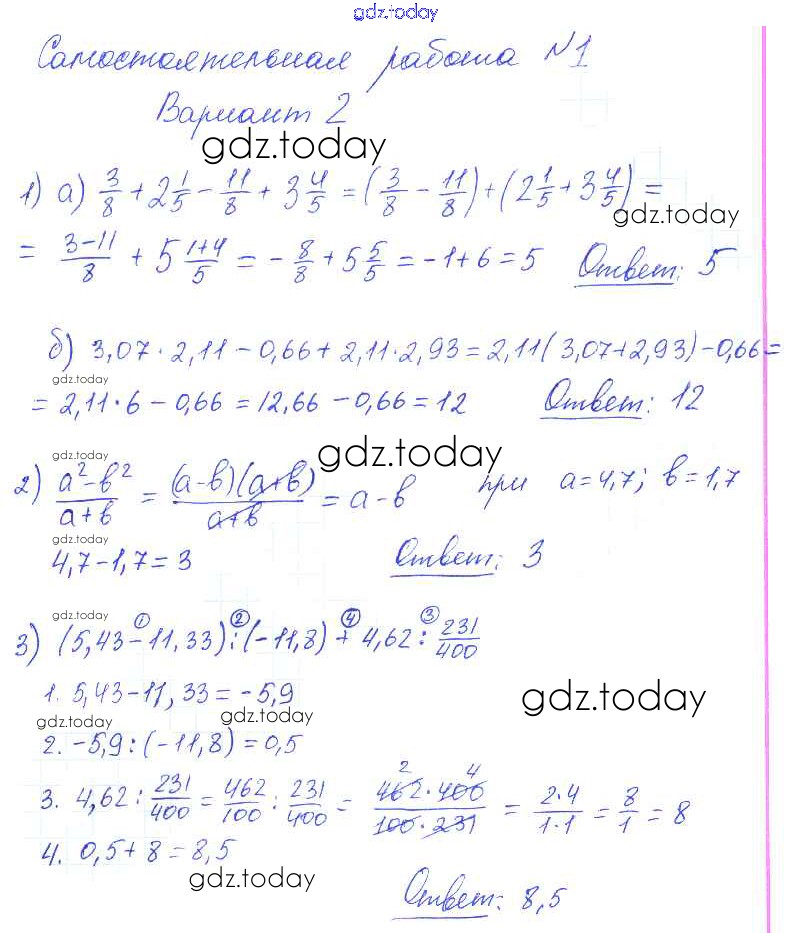 gdz.today
Самостоятельная работа №1
Вариант 2
gdz.today
1) а) 3/8 + 2 1/5 − 11/8 + 3 4/5 = (3/8 − 11/8) + (2 1/5 + 3 4/5) =
gdz.today
= (3−11)/8 + 5 (1+4)/5 = − 8/8 + 5 5/5 = −1+6 = 5 Ответ: 5
б) 3,07 · 2,11 − 0,66 + 2,11 · 2,93 = 2,11(3,07+2,93) − 0,66 =
gdz.today
= 2,11 · 6 − 0,66 = 12,66 − 0,66 = 12 Ответ: 12
gdz.today
gdz.today
2) (a² − b²)/(a + b) = (a−b)(a+b)/(a+b) = a − b при a = 4,7; b = 1,7
gdz.today
4,7 − 1,7 = 3 Ответ: 3
gdz.today
① ② ④ ③
3) (5,43 − 11,33) : (−11,8) + 4,62 : 231/400
1. 5,43 − 11,33 = −5,9
gdz.today
gdz.today
gdz.today
2. −5,9 : (−11,8) = 0,5
2 4
3. 4,62 : 231/400 = 462/100 : 231/400 = (462 · 400)/(100 · 231) = (2 · 4)/(1 · 1) = 8/1 = 8
4. 0,5 + 8 = 8,5
gdz.today
gdz.today
Ответ: 8,5